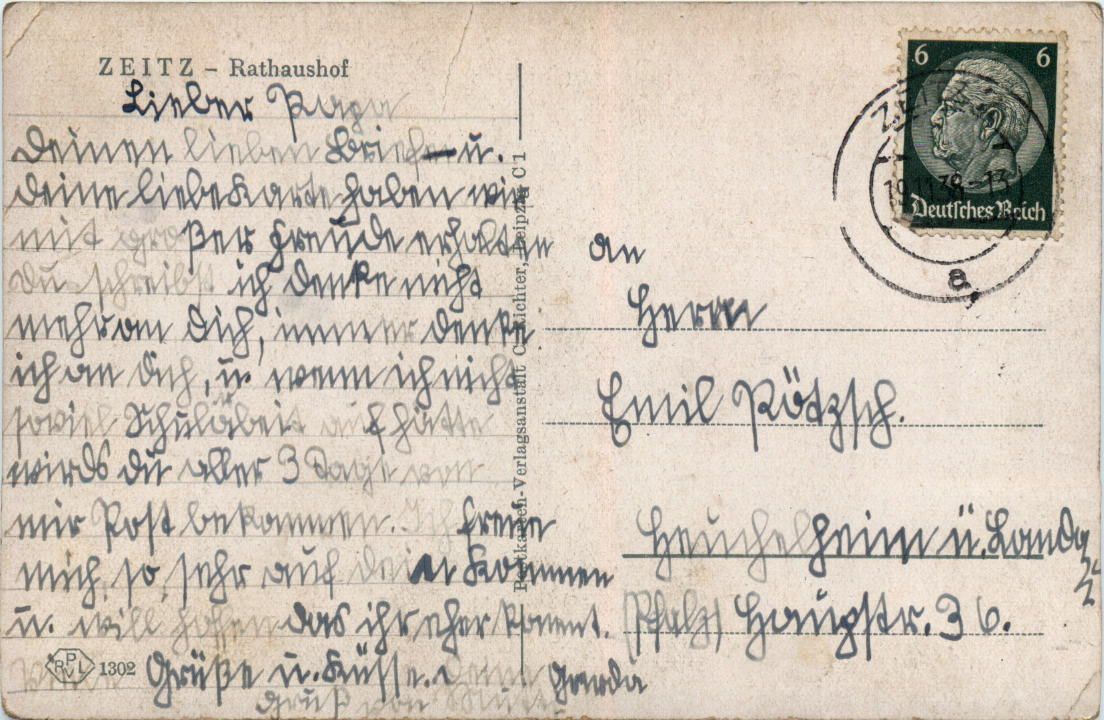 ZEITZ – Rathaushof
Lieber Papa
Deinen lieben Brief u.
deine liebe Karte haben wir
mit großer Freude erhalten
Du schreibst ich denke nicht
mehr an Dich, immer denke
ich an Dich, u. wenn ich nicht
soviel Schularbeit auf hätte
wirds du aller 3 Tage von
mir Post bekommen. Ich freue
mich, so sehr auf dein Kommen
u. will hoffen das ihr eher kommt.
Viele Grüße u. Küsse. Deine Gerda
Gruß von Mutti
PRVL 1302
Postkarten-Verlagsanstalt C. Richter, Leipzig C 1
An
Herrn
Emil Rötzsch.
Heuchelheim ü. Landau
(Pfalz) Hauptstr. 36.
6 6
Deutsches Reich
ZEITZ
19.11.38.-13
a